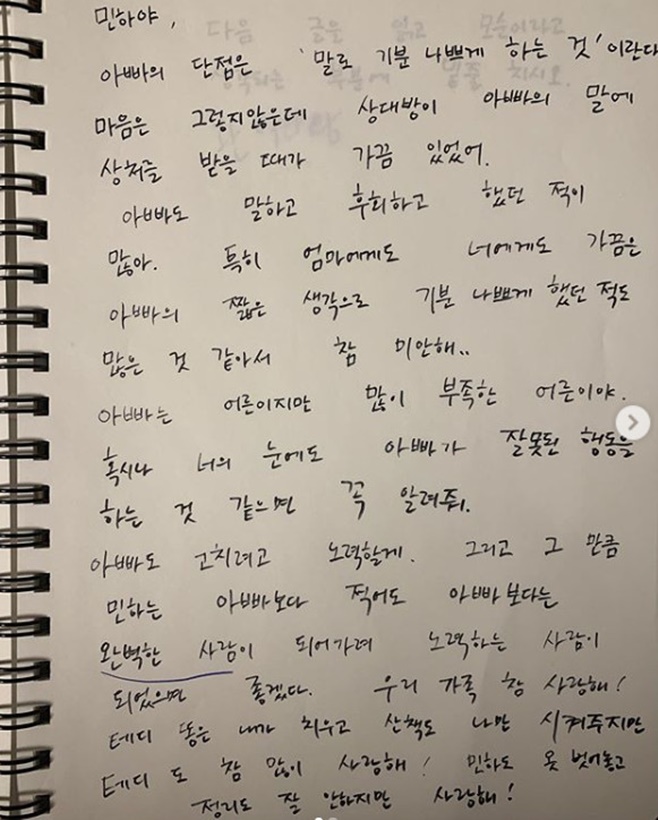 민하야,
아빠의 단점은 '말로 기분 나쁘게 하는 것'이란다
마음은 그렇지않은데 상대방이 아빠의 말에
상처를 받을 때가 가끔 있었어.
아빠도 말하고 후회하고 했던 적이
많아. 특히 엄마에게도 너에게도 가끔은
아빠의 짧은 생각으로 기분 나쁘게 했던 적도
많은 것 같아서 참 미안해..
아빠는 어른이지만 많이 부족한 어른이야.
혹시나 너의 눈에도 아빠가 잘못된 행동을
하는 것 같으면 꼭 알려줘.
아빠도 고치려고 노력할게. 그리고 그 만큼
민하는 아빠보다 적어도 아빠보다는
완벽한 사람이 되어가려 노력하는 사람이
되었으면 좋겠다. 우리 가족 참 사랑해!
테디 똥은 내가 치우고 산책도 나만 시켜주지만
테디 도 참 많이 사랑해! 민하도 옷 벗어놓고
정리도 잘 안하지만 사랑해!